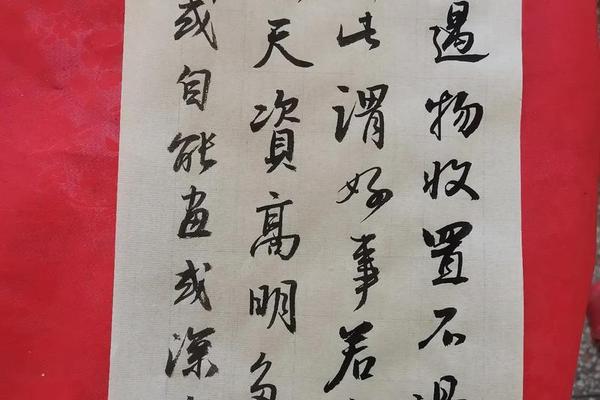 遇物收置不過
此谓好事若
天資高明多
或自能畫或深